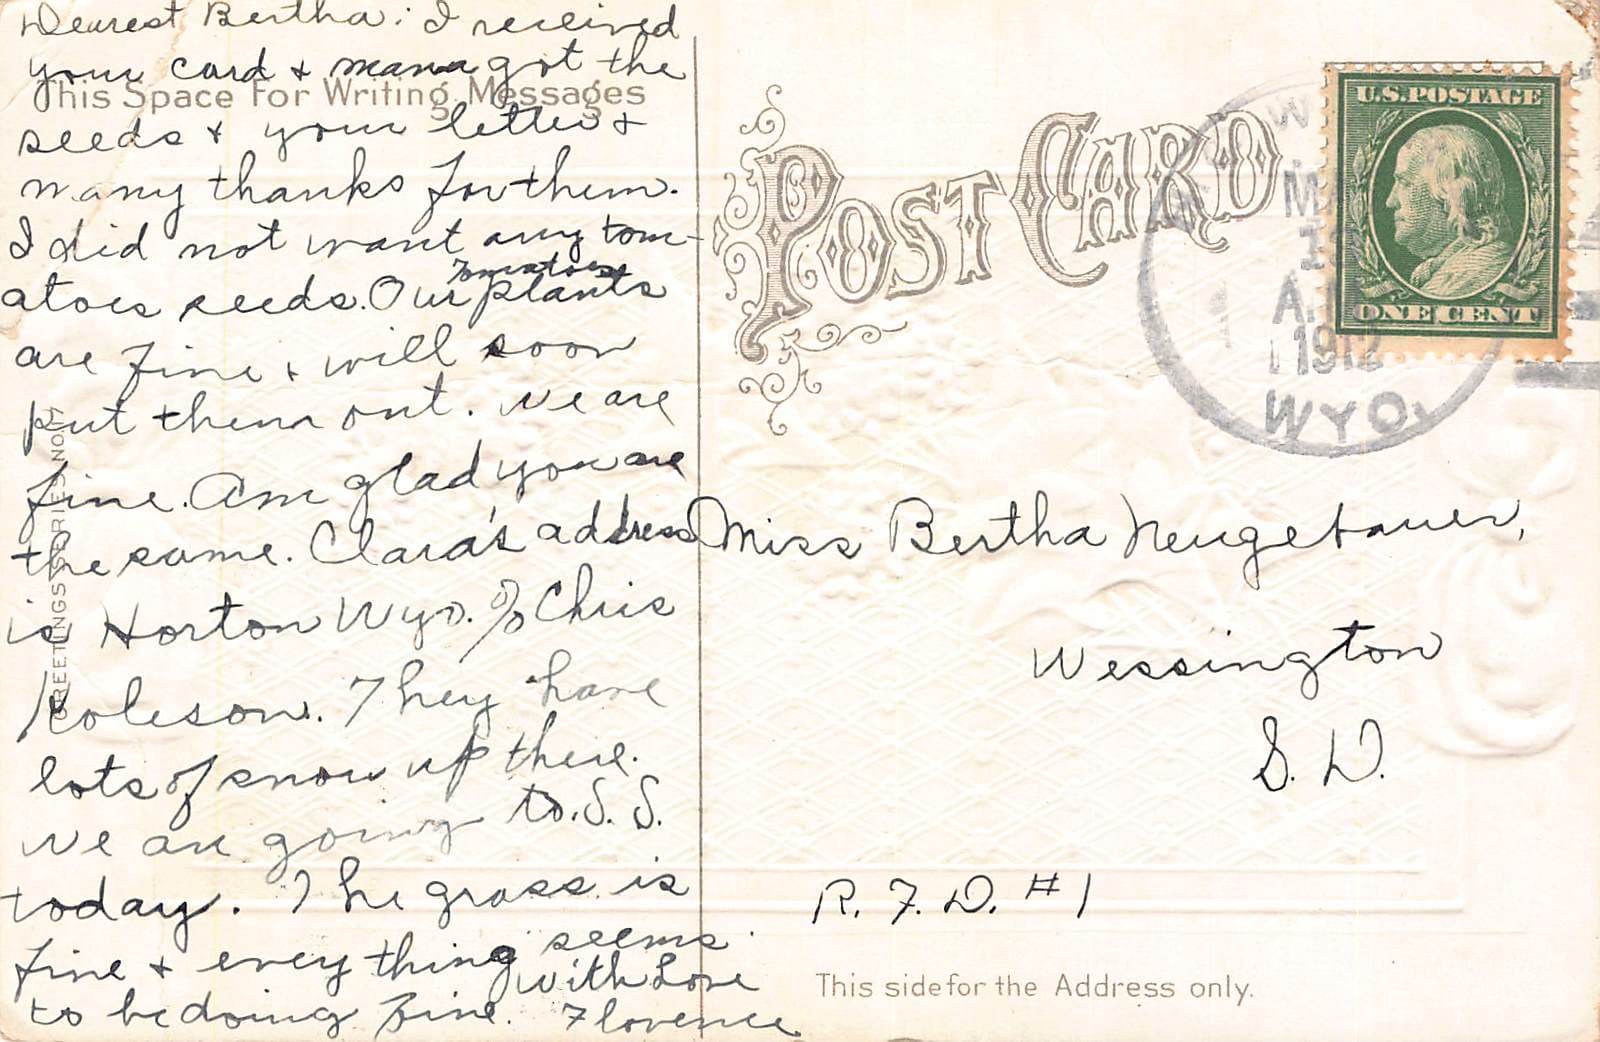 Dearest Bertha: I received
your card & mama got the
This Space For Writing Messages
seeds & your letter &
many thanks for them.
I did not want any tom-
atoes seeds. Our tomatoes plants
are fine & will soon
put them out. We are
fine. Am glad you are
the same. Clara's address
is Horton Wyo. % Chris
Koleson. They have
lots of snow up there.
We are going to S. S.
today. The grass is
fine & every thing seems
to be doing fine. With Love
Florence
GREETINGS SERIES NO.
POST CARD
U.S. POSTAGE
ONE CENT
W
M
1
A.
1912
WYO.
Miss Bertha Neugebauer,
Wessington
S. D.
R. F. D. #1
This side for the Address only.